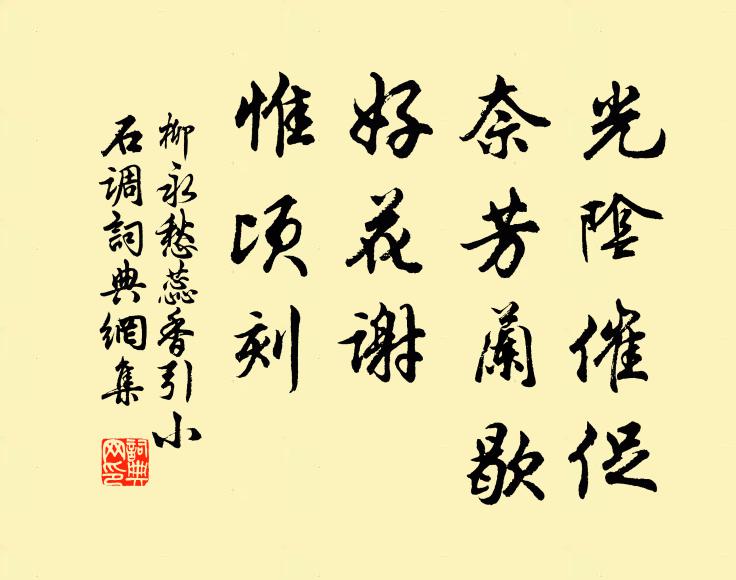 光陰催促
奈芳蘭歇
好花謝
惟頃刻
柳永愁蕊香引小
石調詞典網集
詞典
网印